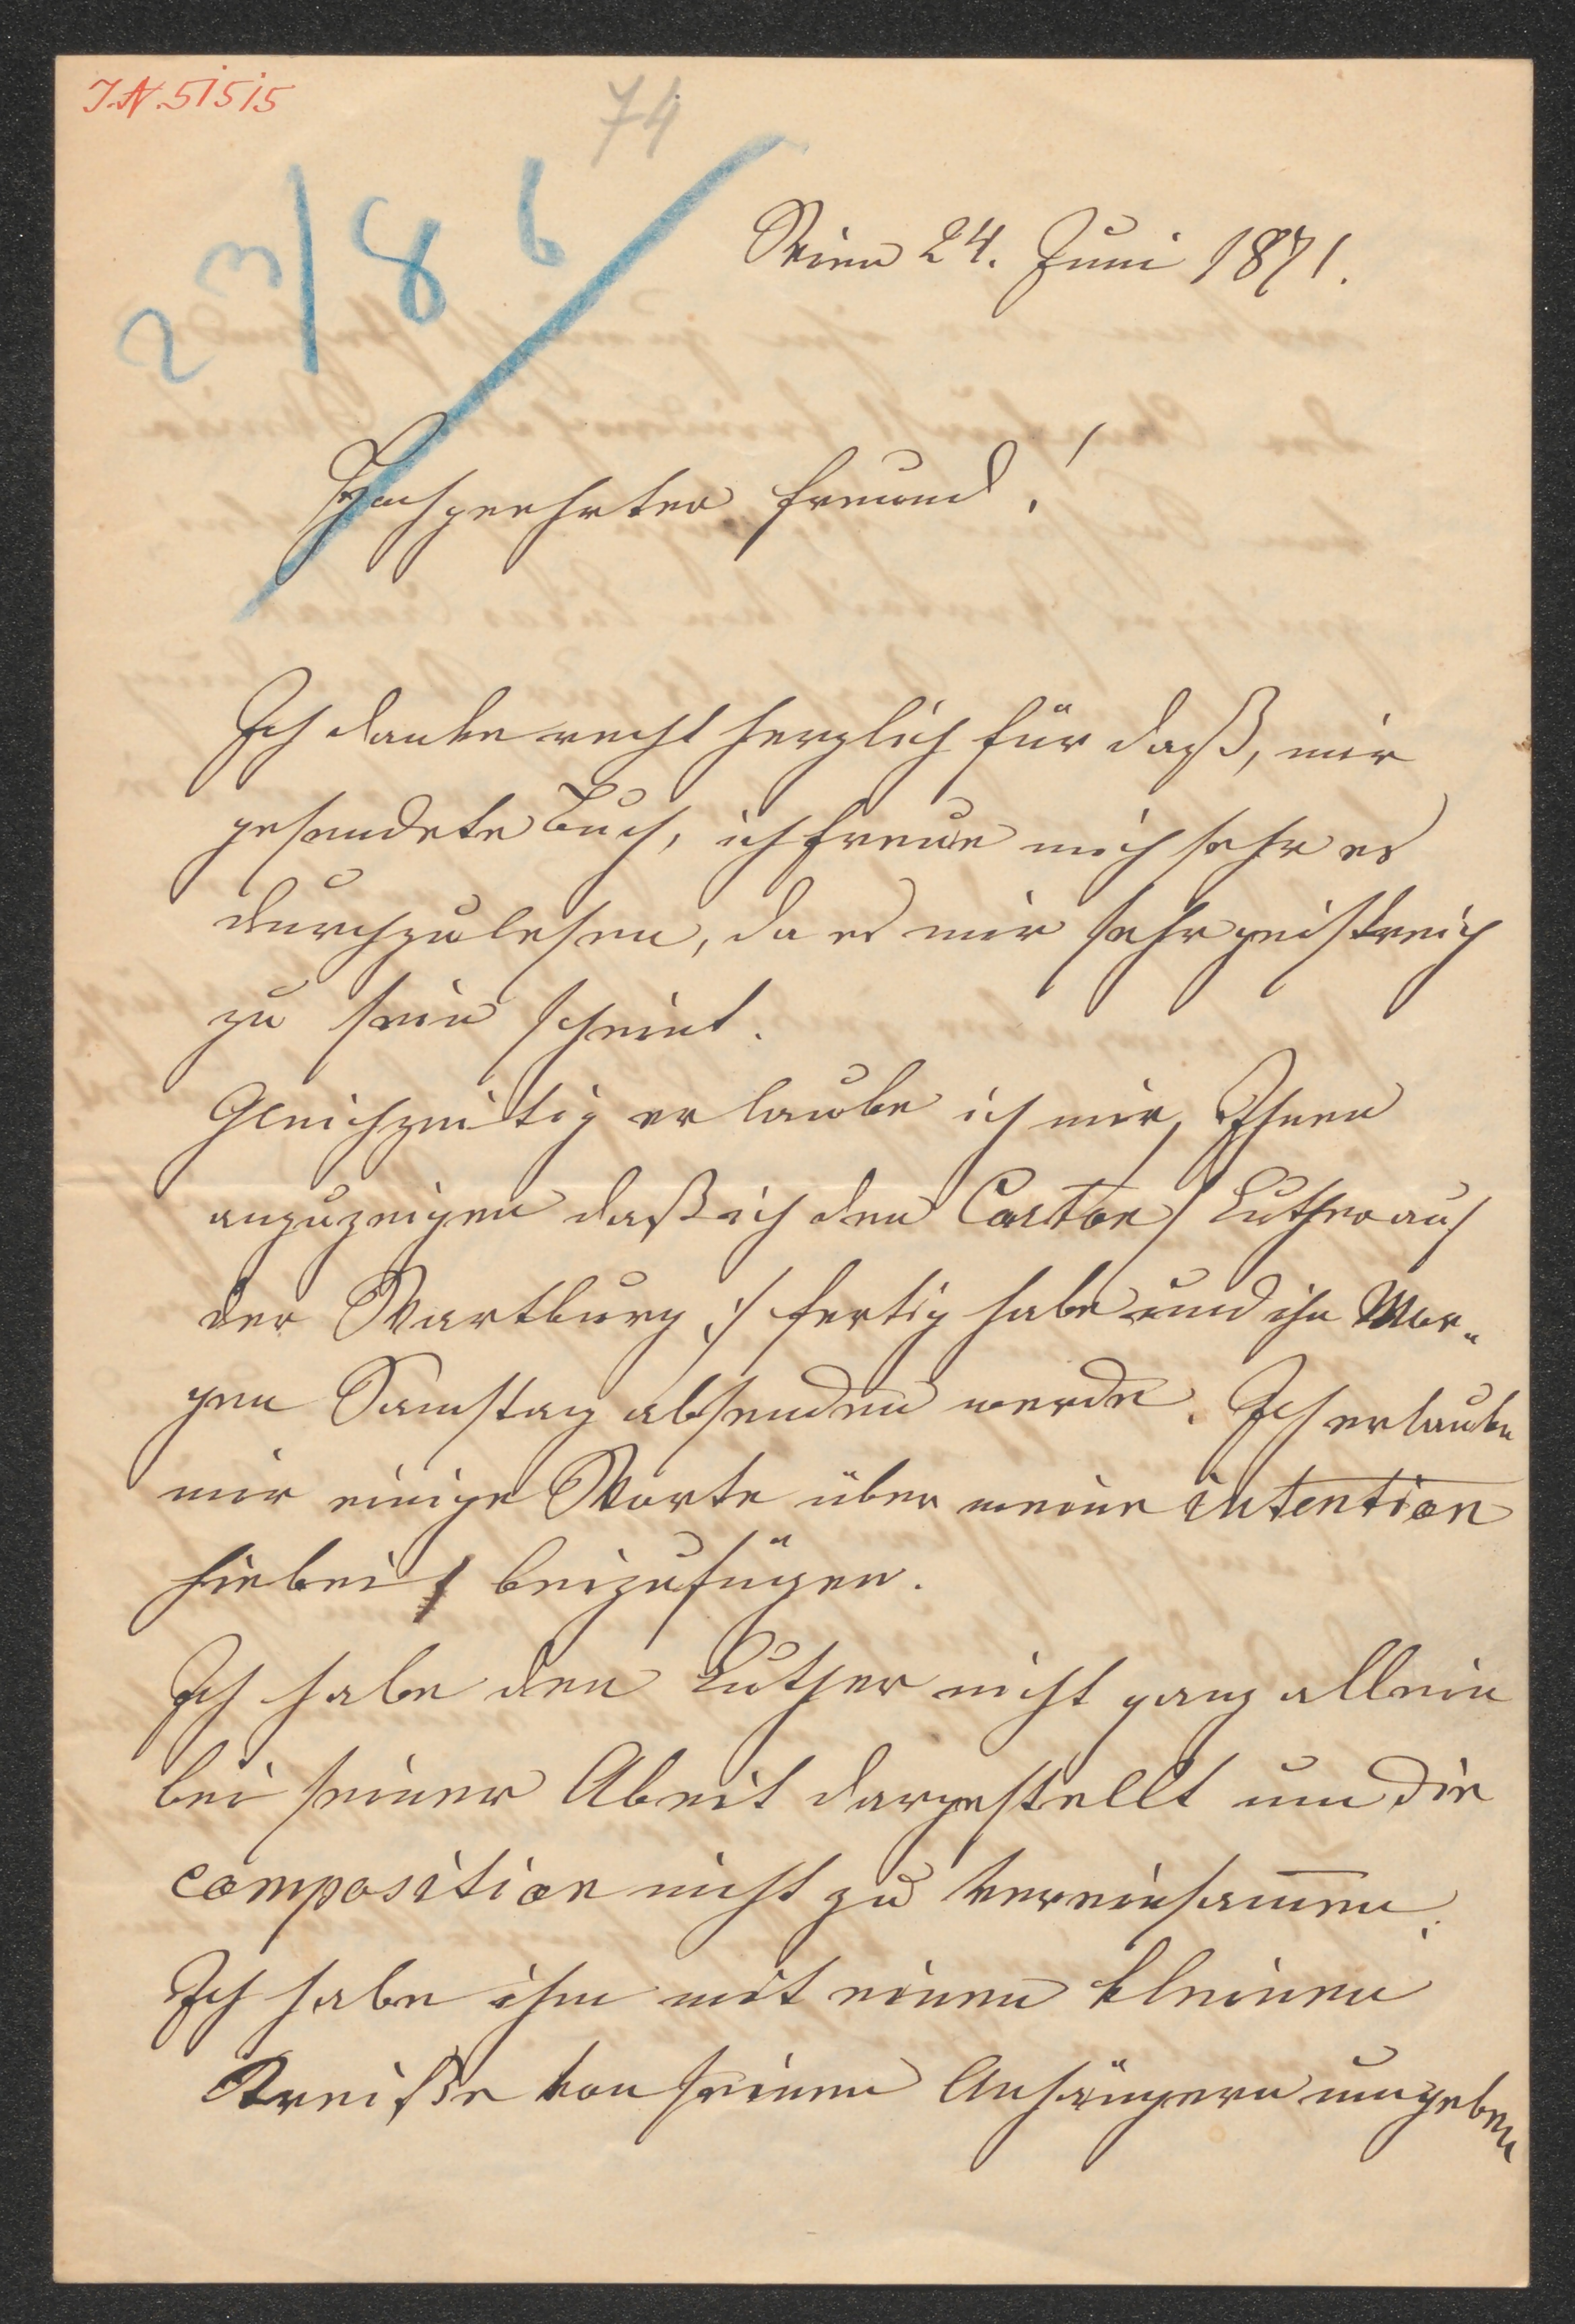 I.N. 51515
74
23/8 6
Wien 24. Juni 1871.
Hochgeehrter Freund!
Ich danke recht herzlich für daß, mir
gesendete Buch, ich freue mich sehr es
durchzulesen, da es mir sehr geistreich
zu sein scheint.
Gleichzeitig erlaube ich mir, Ihnen
anzuzeigen daß ich den Carton / Luther auf
der Wartburg :/ fertig habe und ihn Mor„
gen Samstag absenden werde. Ich erlaube
mir einige Worte über meine intention
hiebei beizufügen.
Ich habe den Luther nicht ganz allein
bei seiner Abeit dargestellt um die
composition nicht zu vereinsam̅en.
Ich habe ihn mit einen kleinen
Kreiße von seinen Anhängern umgeben